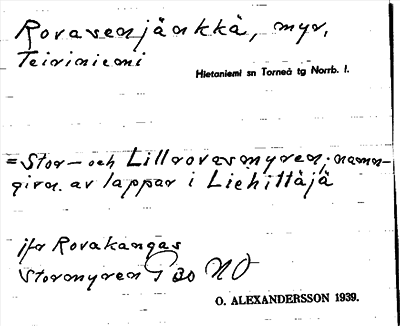 Rovasenjänkkä, myr,
Teiriniemi
Hietaniemi sn Torneå tg Norrb. l.
= Stor- och Lillrovasmyren; namn-
givn. av lappar i Liehittäjä
jfr Rovakangas
Stormyren G 30 NO
O. ALEXANDERSSON 1939.